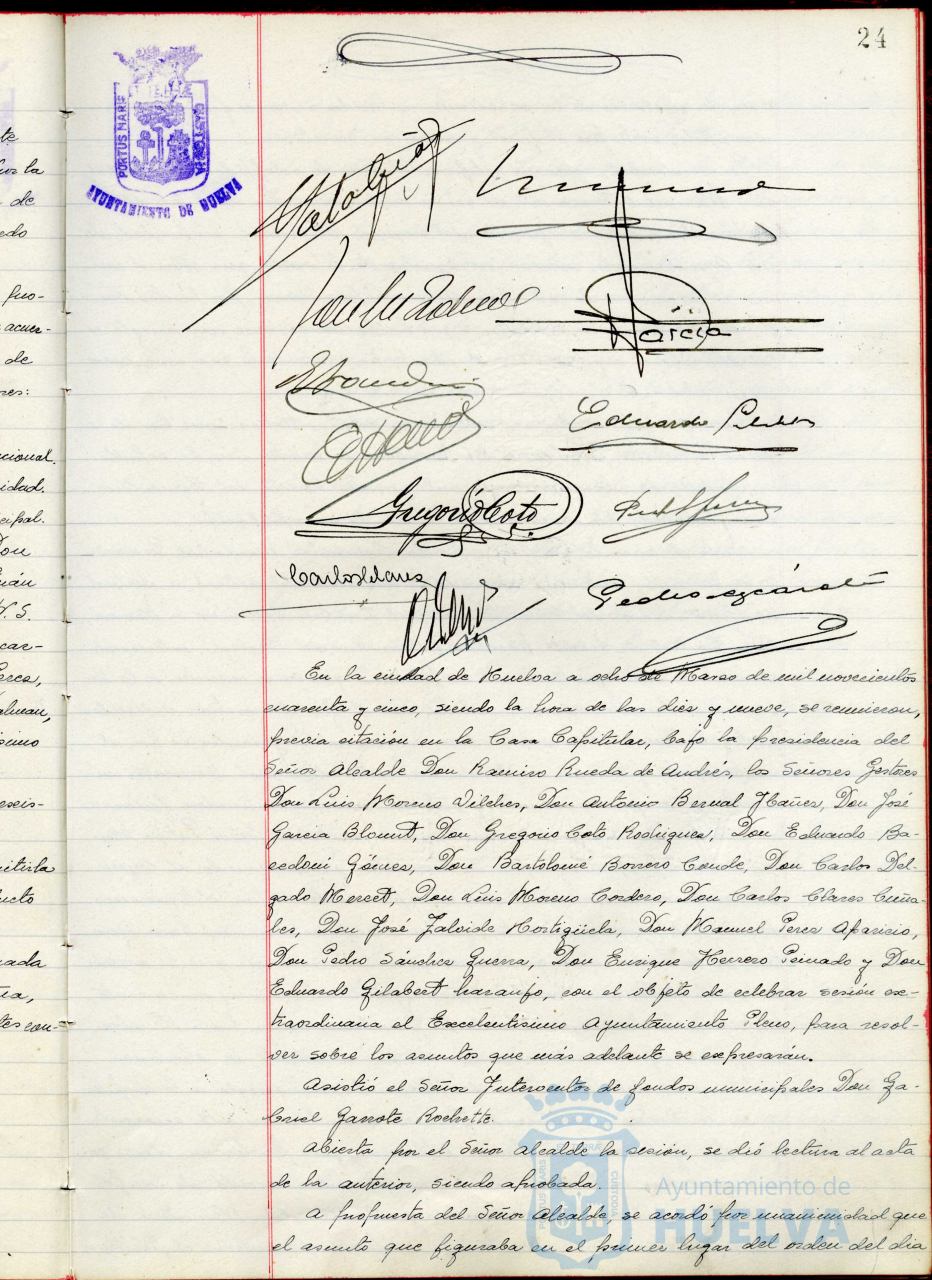 24
PORTUS MARIS
AYUNTAMIENTO DE HUELVA
García
Eduardo
Gregorio Coto
Carlos Clares
Pedro
te
por la
de
edo
pro-
acuer-
de
res:
cional.
idad.
cipal.
Don
ián
V. S.
car-
Perez,
simo
seis-
itirla
ucto
uada
tes con-
En la ciudad de Huelva a ocho de Marzo de mil novecientos
cuarenta y cinco, siendo la hora de las diez y nueve, se reunieron,
previa citación en la Casa Capitular, bajo la presidencia del
Señor Alcalde Don Ramiro Rueda de Andrés, los Señores Gestores
Don Luis Moreno Vilches, Don Antonio Bernal Ybañez, Don José
Garcia Blount, Don Gregorio Coto Rodriguez, Don Eduardo Ba-
cedoni Gómez, Don Bartolomé Borrero Conde, Don Carlos Del-
gado Mercet, Don Luis Moreno Cordero, Don Carlos Clares Cuña-
les, Don José Zalvide Hortigüela, Don Manuel Perez Aparicio,
Don Pedro Sánchez Guerra, Don Enrique Herrero Peinado y Don
Eduardo Gilabert Naranjo, con el objeto de celebrar sesión ex-
traordinaria el Excelentisimo Ayuntamiento Pleno, para resol-
ver sobre los asuntos que más adelante se expresarán.
Asistió el Señor Interventor de fondos municipales Don Ga-
briel Garrote Rochette.
Abierta por el Señor Alcalde la sesión, se dió lectura al acta
de la anterior, siendo aprobada.
A propuesta del Señor Alcalde, se acordó por unanimidad que
el asunto que figuraba en el primer lugar del orden del dia
Ayuntamiento de
HUELVA